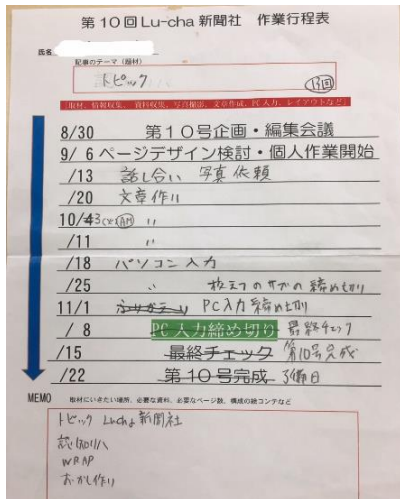 第10回Lu-cha新聞社 作業行程表
氏名
記事のテーマ（題材）
トピック
13回
取材、情報収集、資料収集、写真撮影、文章作成、PC入力、レイアウトなど
8/30 第10号企画・編集会議
9/6 ページデザイン検討・個人作業開始
/13 話し合い 写真依頼
/20 文章作り
10/43 AM 〃
/11 〃
/18 パソコン入力
/25 〃 の締め切り
11/1 ふりカエリ PC入力締め切り
/8 PC入力締め切り 最終チェック
/15 最終チェック 第10号完成
/22 第10号完成 予備日
MEMO 取材にいきたい場所、必要な資料、必要なページ数、構成の絵コンテなど
トピック Lucha新聞社
WRAP
おかし作り